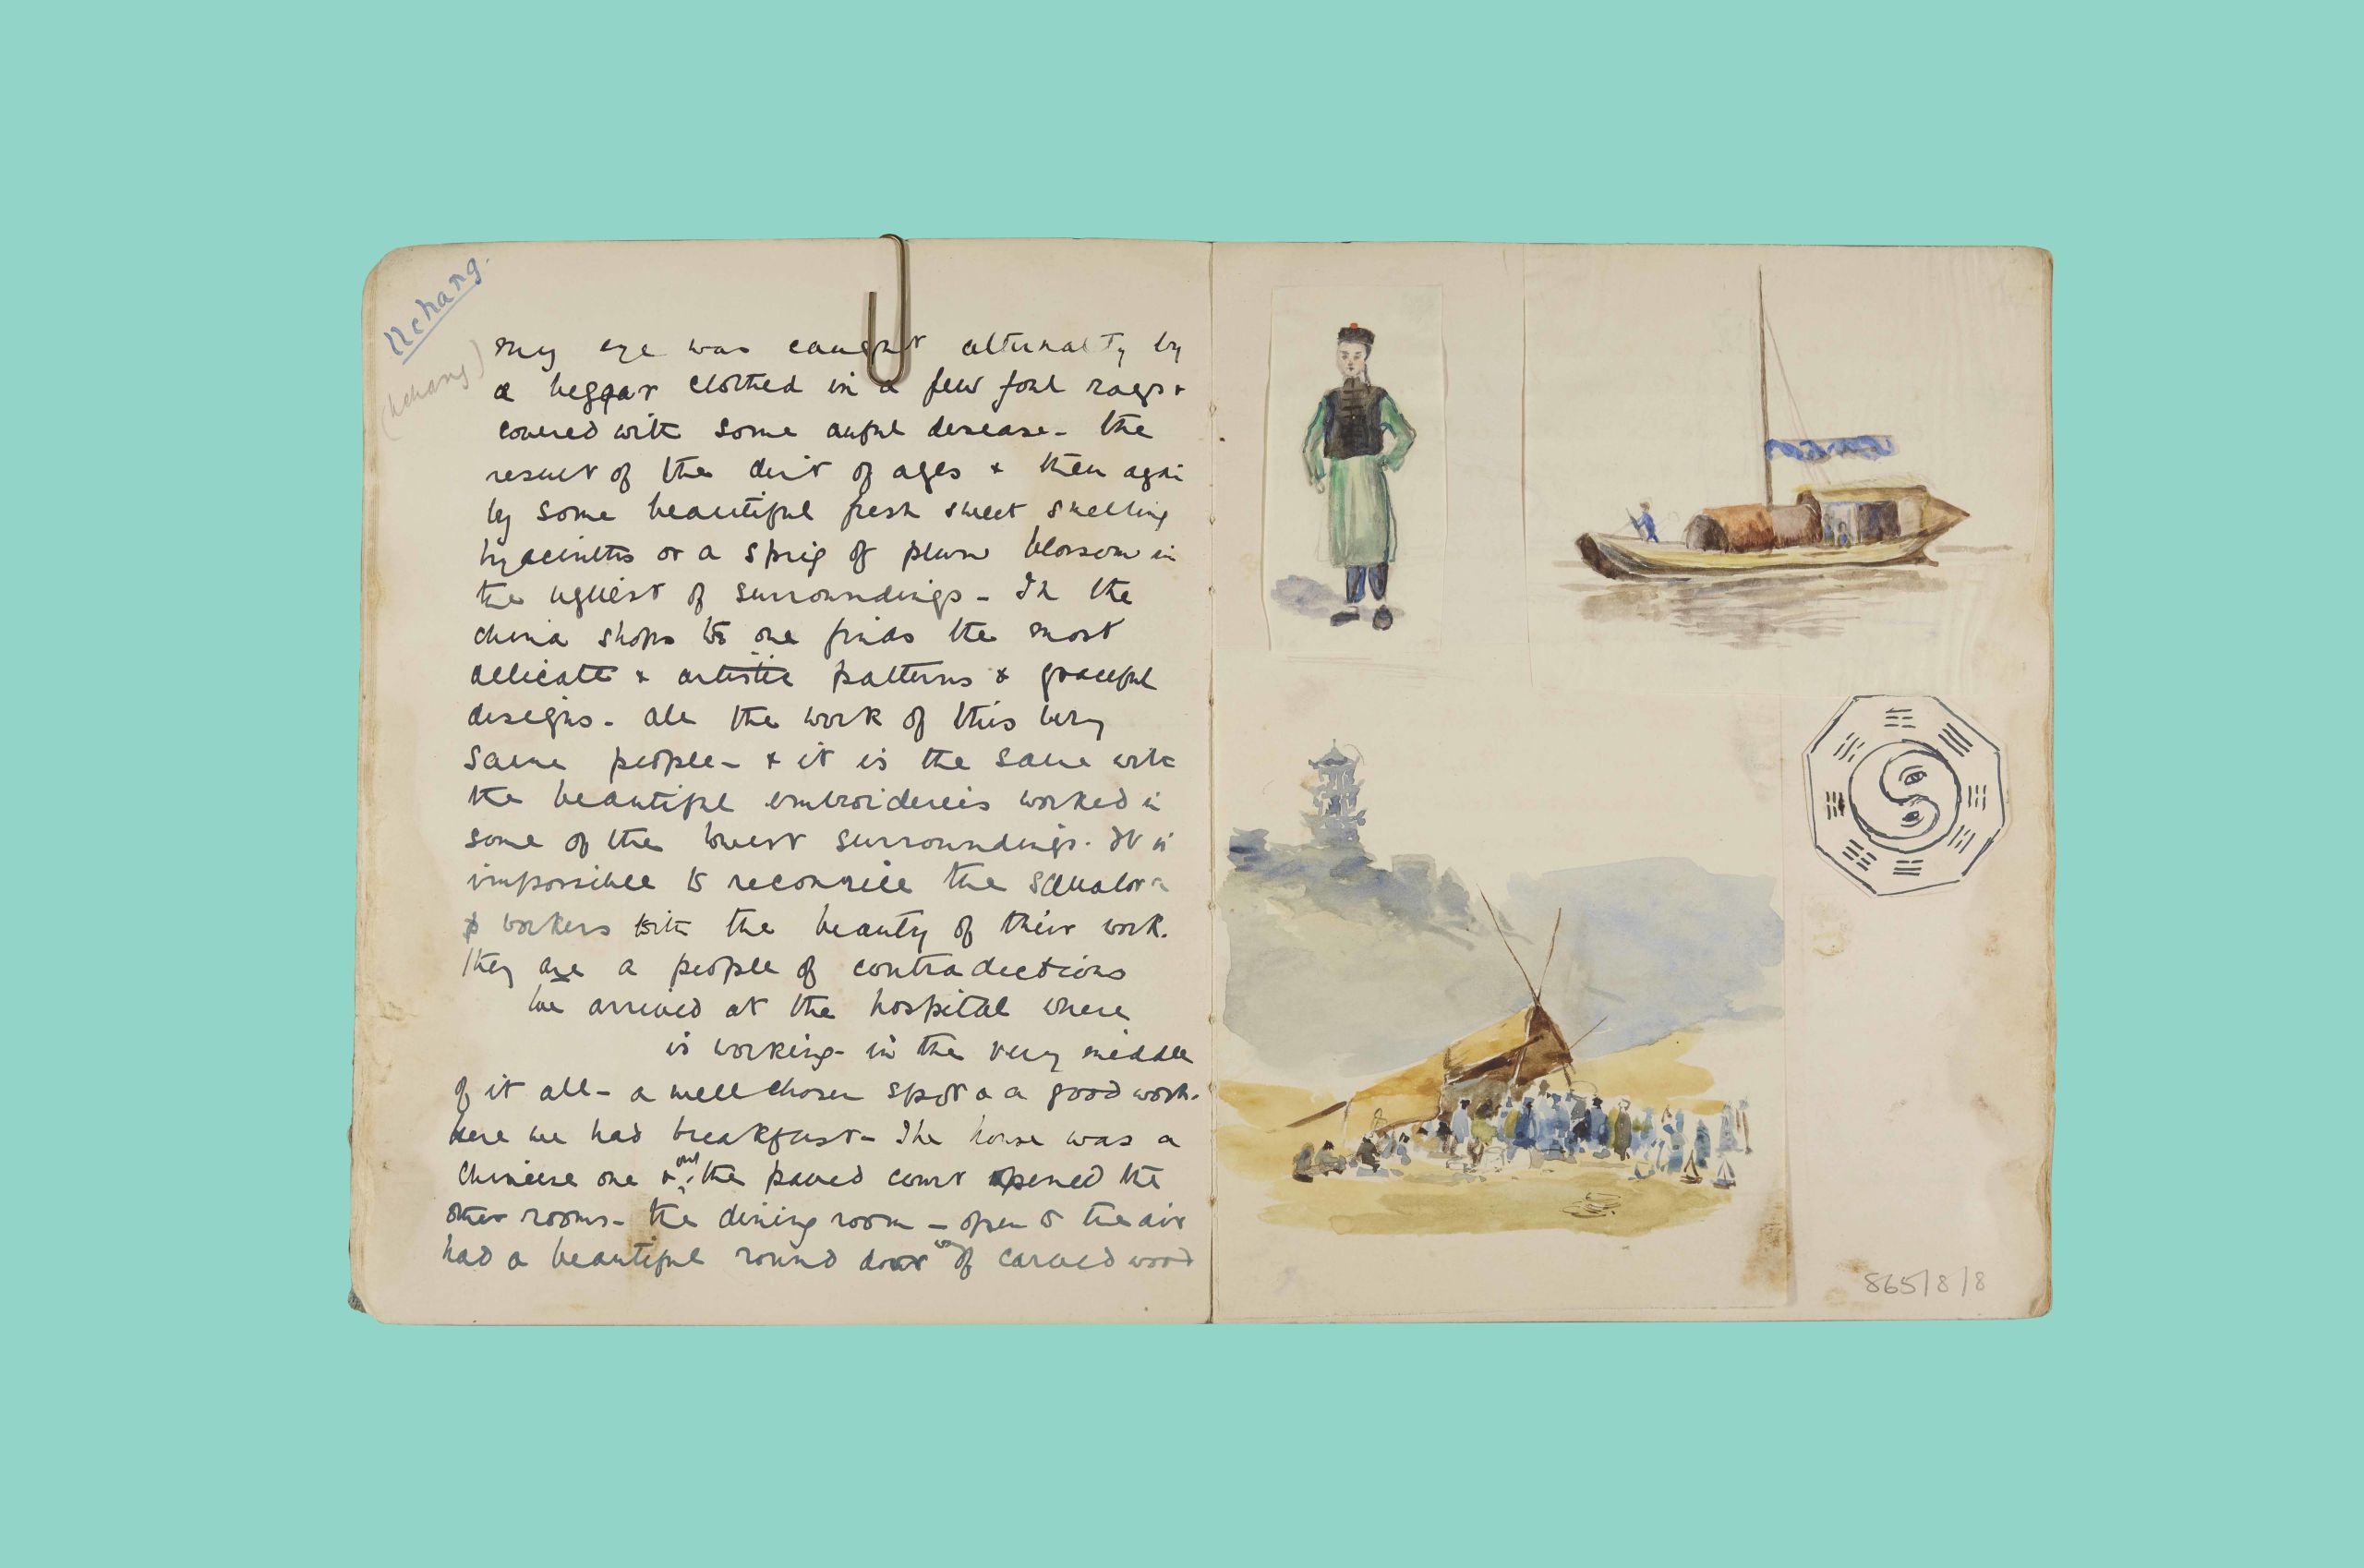 Ichang.
(Ichang)
My eye was caught alternatly by
a beggar clothed in a few foul rags +
covered with some awful desease - the
result of the dirt of ages + then agai
by some beautiful fresh sweet smelling
hyacinths or a sprig of plum blossom in
the ugliest of surroundings - In the
china shops to one finds the most
delicate + artistic patterns + graceful
designs - all the work of this very
same people - + it is the same with
the beautiful embroideries worked in
some of the lowest surroundings. It is
impossible to reconcile the squalor
workers with the beauty of their work.
They are a people of contradictions
We arrived at the hospital where
is working - in the very middle
of it all - a well chosen spot a a good work.
Here we had breakfast - The house was a
Chineese one + out the paved court opened the
other rooms - the dining room - open to the air
had a beautiful round door way of carved wood
865/8/8